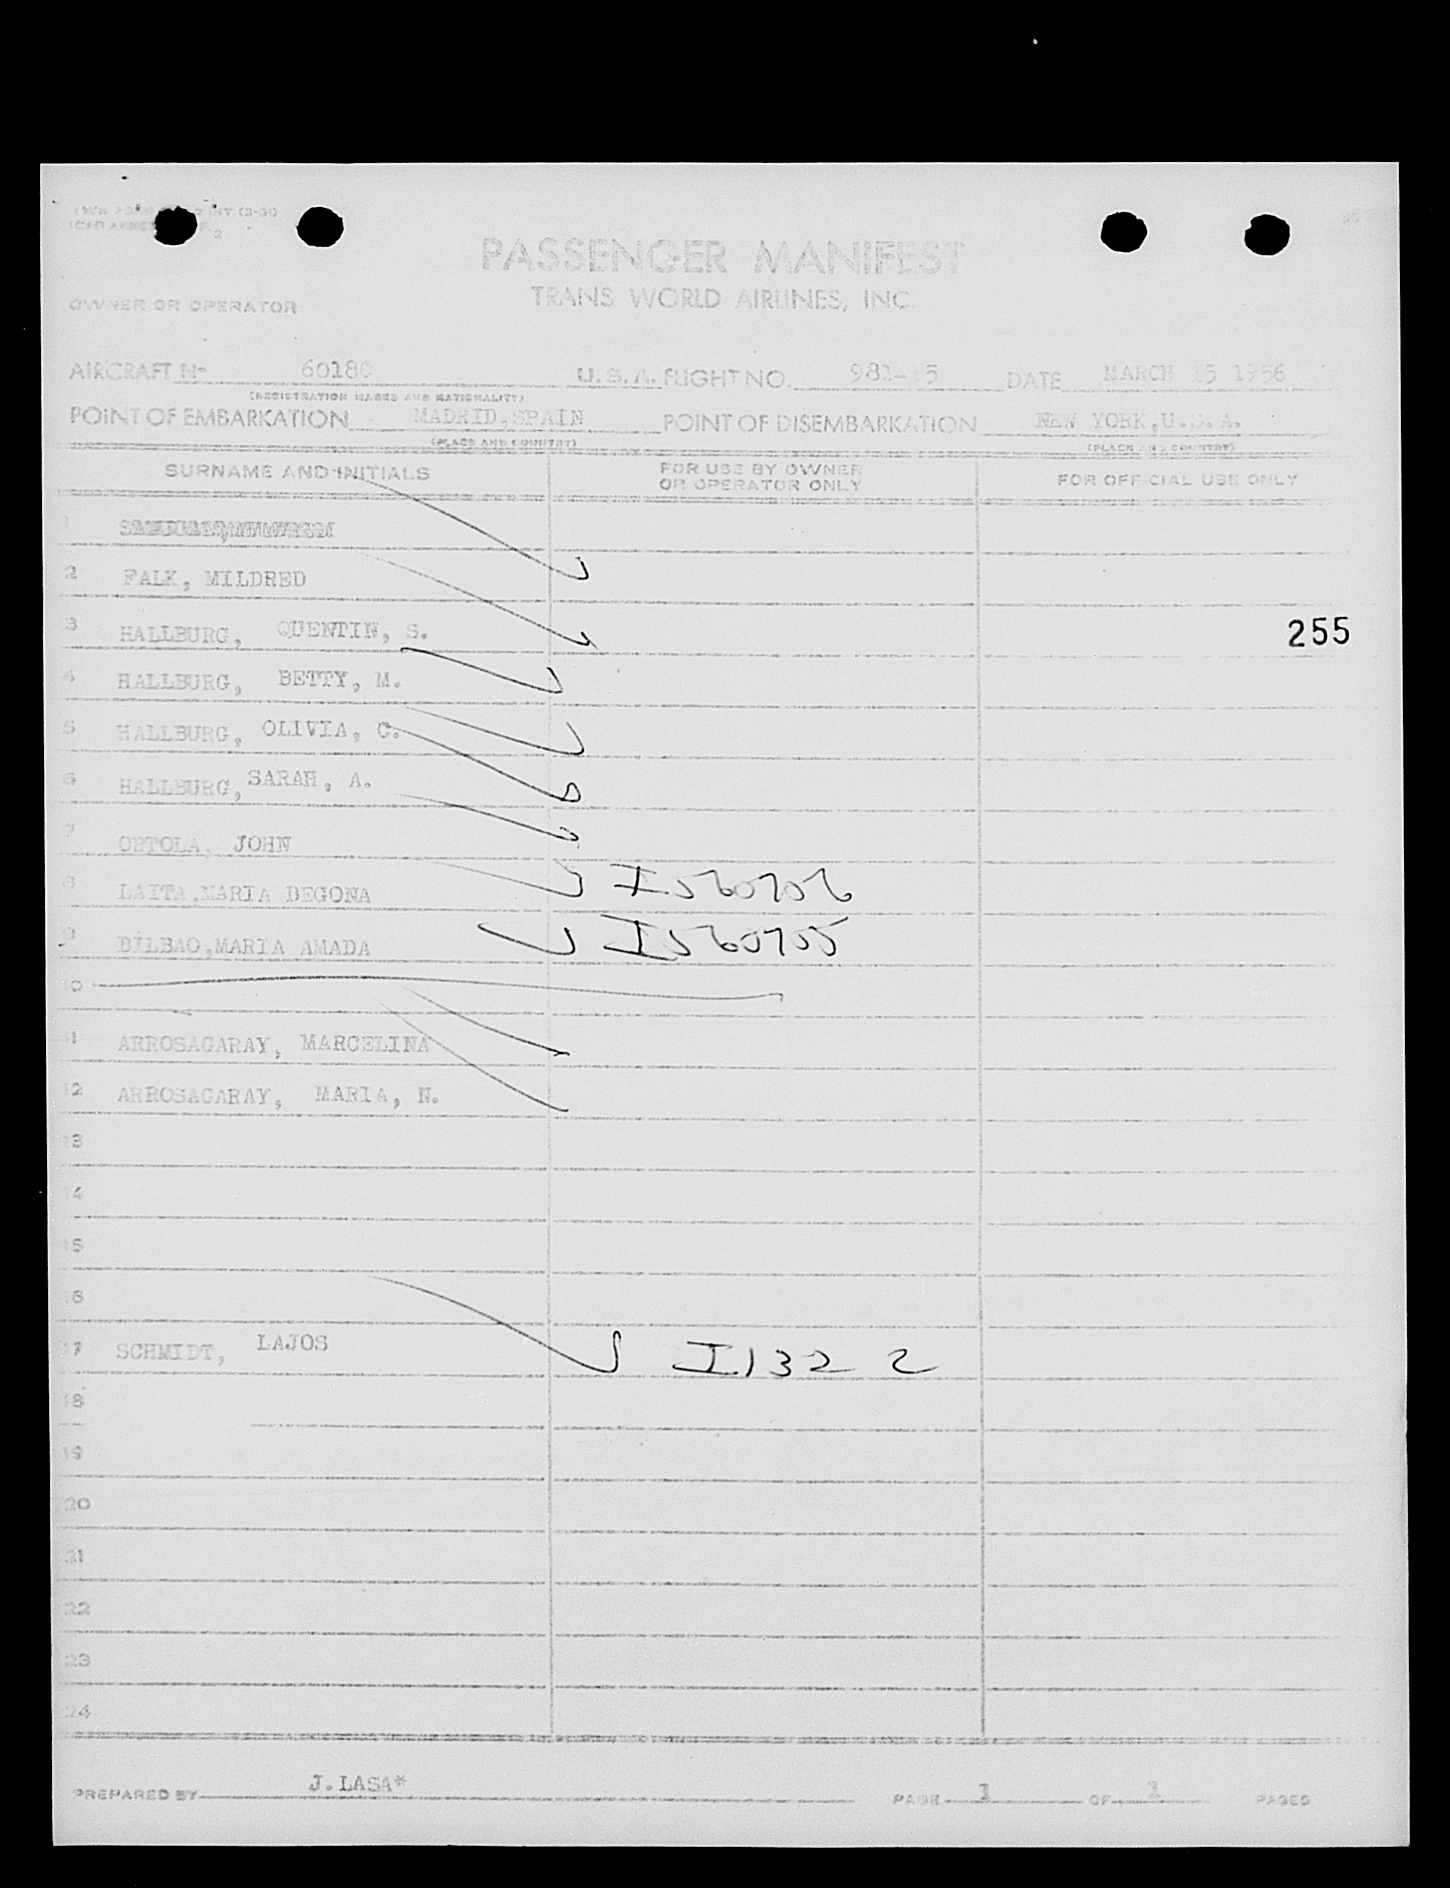 PASSENGER MANIFEST
TRANS WORLD AIRLINES, INC.
OWNER OR OPERATOR
AIRCRAFT Nº 60180 U.S.A. FLIGHT NO. 981-15 DATE MARCH 15 1956
(REGISTRATION MARKS AND NATIONALITY)
POINT OF EMBARKATION MADRID,SPAIN POINT OF DISEMBARKATION NEW YORK,U.S.A.
(PLACE AND COUNTRY) (PLACE AND COUNTRY)
SURNAME AND INITIALS FOR USE BY OWNER OR OPERATOR ONLY FOR OFFICIAL USE ONLY
1
2 FALK, MILDRED
3 HALLBURG, QUENTIN, S. 255
4 HALLBURG, BETTY, M.
5 HALLBURG, OLIVIA, C.
6 HALLBURG, SARAH, A.
7 ORTOLA, JOHN
8 LAITA,MARIA BEGONA I560706
9 BILBAO,MARIA AMADA I560705
10
11 ARROSAGARAY, MARCELINA
12 ARROSAGARAY, MARIA, N.
13
14
15
16
17 SCHMIDT, LAJOS I132 2
18
19
20
21
22
23
24
PREPARED BY J.LASA* PAGE 1 OF 1 PAGES